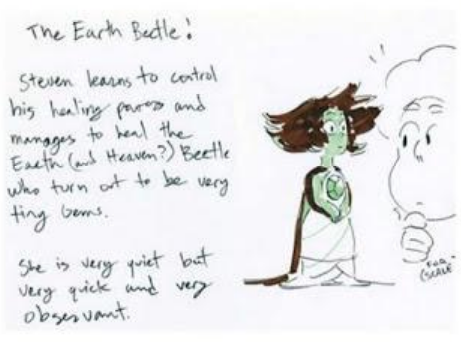 The Earth Beetle!
Steven learns to control
his healing powers and
manages to heal the
Earth (and Heaven?) Beetle
who turn out to be very
tiny Gems.
She is very quiet but
very quick and very
observant.
FOR
SCALE